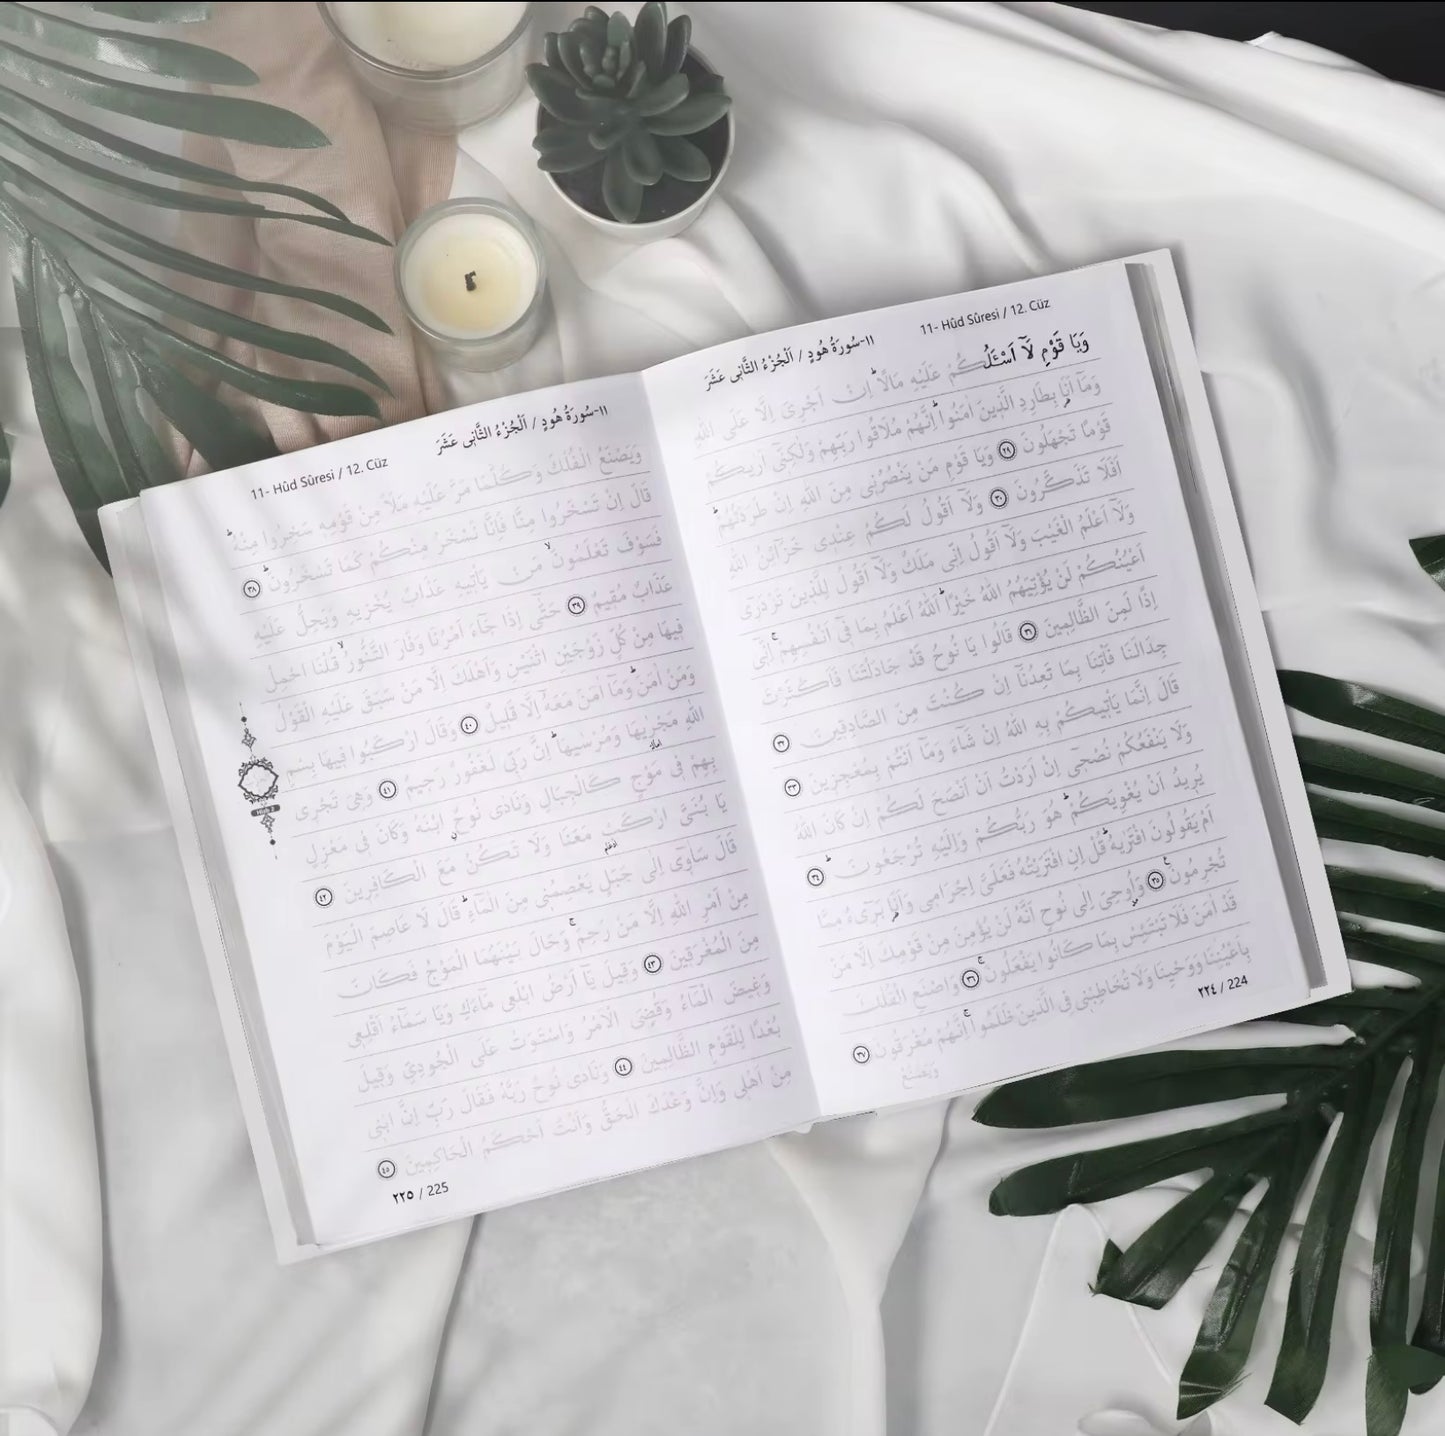 ١١-سُورَةُ هُودٍ / اَلْجُزْءُ الثَّانِي عَشَرَ 11- Hûd Sûresi / 12. Cüz
وَيَا قَوْمِ لَآ اَسْـَٔلُكُمْ عَلَيْهِ مَالًا اِنْ اَجْرِيَ اِلَّا عَلَى اللّٰهِ
وَمَآ اَنَا بِطَارِدِ الَّذِينَ اٰمَنُوا اِنَّهُمْ مُلَاقُوا رَبِّهِمْ وَلٰكِنِّٓي اَرٰيكُمْ
قَوْمًا تَجْهَلُونَ ٢٩ وَيَا قَوْمِ مَنْ يَنْصُرُنِي مِنَ اللّٰهِ اِنْ طَرَدْتُهُمْ
اَفَلَا تَذَكَّرُونَ ٣٠ وَلَآ اَقُولُ لَكُمْ عِنْدِي خَزَآئِنُ اللّٰهِ
وَلَآ اَعْلَمُ الْغَيْبَ وَلَآ اَقُولُ اِنِّي مَلَكٌ وَلَآ اَقُولُ لِلَّذِينَ تَزْدَرِٓي
اَعْيُنُكُمْ لَنْ يُؤْتِيَهُمُ اللّٰهُ خَيْرًا اَللّٰهُ اَعْلَمُ بِمَا فِٓي اَنْفُسِهِمْ اِنِّٓي
اِذًا لَمِنَ الظَّالِمِينَ ٣١ قَالُوا يَا نُوحُ قَدْ جَادَلْتَنَا فَاَكْثَرْتَ
جِدَالَنَا فَأْتِنَا بِمَا تَعِدُنَآ اِنْ كُنْتَ مِنَ الصَّادِقِينَ ٣٢
قَالَ اِنَّمَا يَأْتِيكُمْ بِهِ اللّٰهُ اِنْ شَآءَ وَمَآ اَنْتُمْ بِمُعْجِزِينَ ٣٣
وَلَا يَنْفَعُكُمْ نُصْحِٓي اِنْ اَرَدْتُ اَنْ اَنْصَحَ لَكُمْ اِنْ كَانَ اللّٰهُ
يُرِيدُ اَنْ يُغْوِيَكُمْ هُوَ رَبُّكُمْ وَاِلَيْهِ تُرْجَعُونَ ٣٤
اَمْ يَقُولُونَ افْتَرٰيهُ قُلْ اِنِ افْتَرَيْتُهُ فَعَلَيَّ اِجْرَامِي وَاَنَا بَرِٓيءٌ مِمَّا
تُجْرِمُونَ ٣٥ وَاُوحِيَ اِلٰى نُوحٍ اَنَّهُ لَنْ يُؤْمِنَ مِنْ قَوْمِكَ اِلَّا مَنْ
قَدْ اٰمَنَ فَلَا تَبْتَئِسْ بِمَا كَانُوا يَفْعَلُونَ ٣٦ وَاصْنَعِ الْفُلْكَ
بِاَعْيُنِنَا وَوَحْيِنَا وَلَا تُخَاطِبْنِي فِي الَّذِينَ ظَلَمُوا اِنَّهُمْ مُغْرَقُونَ ٣٧
وَيَصْنَعُ
٢٢٤ / 224
١١-سُورَةُ هُودٍ / اَلْجُزْءُ الثَّانِي عَشَرَ 11- Hûd Sûresi / 12. Cüz
وَيَصْنَعُ الْفُلْكَ وَكُلَّمَا مَرَّ عَلَيْهِ مَلَاٌ مِنْ قَوْمِهِ سَخِرُوا مِنْهُ
قَالَ اِنْ تَسْخَرُوا مِنَّا فَاِنَّا نَسْخَرُ مِنْكُمْ كَمَا تَسْخَرُونَ ٣٨
فَسَوْفَ تَعْلَمُونَ مَنْ يَأْتِيهِ عَذَابٌ يُخْزِيهِ وَيَحِلُّ عَلَيْهِ
عَذَابٌ مُقِيمٌ ٣٩ حَتّٰٓى اِذَا جَآءَ اَمْرُنَا وَفَارَ التَّنُّورُ قُلْنَا احْمِلْ
فِيهَا مِنْ كُلٍّ زَوْجَيْنِ اثْنَيْنِ وَاَهْلَكَ اِلَّا مَنْ سَبَقَ عَلَيْهِ الْقَوْلُ
وَمَنْ اٰمَنَ وَمَآ اٰمَنَ مَعَهُٓ اِلَّا قَلِيلٌ ٤٠ وَقَالَ ارْكَبُوا فِيهَا بِسْمِ
اللّٰهِ مَجْرٰۭيهَا وَمُرْسٰيهَا اِنَّ رَبِّي لَغَفُورٌ رَحِيمٌ ٤١ وَهِيَ تَجْرِي
بِهِمْ فِي مَوْجٍ كَالْجِبَالِ وَنَادٰى نُوحٌ ابْنَهُ وَكَانَ فِي مَعْزِلٍ
يَا بُنَيَّ ارْكَبْ مَعَنَا وَلَا تَكُنْ مَعَ الْكَافِرِينَ ٤٢
قَالَ سَاٰوِٓي اِلٰى جَبَلٍ يَعْصِمُنِي مِنَ الْمَآءِ قَالَ لَا عَاصِمَ الْيَوْمَ
مِنْ اَمْرِ اللّٰهِ اِلَّا مَنْ رَحِمَ وَحَالَ بَيْنَهُمَا الْمَوْجُ فَكَانَ
مِنَ الْمُغْرَقِينَ ٤٣ وَقِيلَ يَآ اَرْضُ ابْلَعِي مَآءَكِ وَيَا سَمَآءُ اَقْلِعِي
وَغِيضَ الْمَآءُ وَقُضِيَ الْاَمْرُ وَاسْتَوَتْ عَلَى الْجُودِيِّ وَقِيلَ
بُعْدًا لِلْقَوْمِ الظَّالِمِينَ ٤٤ وَنَادٰى نُوحٌ رَبَّهُ فَقَالَ رَبِّ اِنَّ ابْنِي
مِنْ اَهْلِي وَاِنَّ وَعْدَكَ الْحَقُّ وَاَنْتَ اَحْكَمُ الْحَاكِمِينَ ٤٥
٢٢٥ / 225